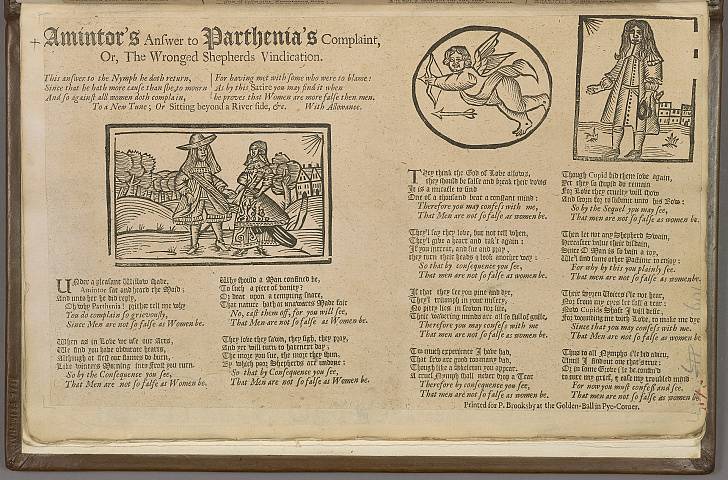 Amintor's Answer to Parthenia's Complaint,
Or, The Wronged Shepherds Vindication.
This answer to the Nymph he doth return,
Since that he hath more cause than she, to mourn
And so against all women doth complain,
For having met with some who were to blame:
As by this Satire you may find it when
he proves that Women are more false then men.
To a New Tune; Or Sitting beyond a River side, &c. With Allowance.
Under a pleasant Willow shade,
Amintor sat and heard the Maid;
And unto her he did reply,
Oh why Parthenia! prithee tell me why
You do complain so grievously,
Since Men are not so false as Women be.
When as in Love we use our Arts,
We find you have obdurate hearts,
Although at first our flames do burn,
Like winters Morning into frost you turn.
So by the Consequence you see,
That Men are not so false as Women be.
Why should a Man confined be,
To such a piece of vanity?
Or doat upon a tempting snare,
That nature hath at unawares Made fair
No, cast them off, for you will see,
That Men are not so false as Women be.
They love they fawn, they sigh, they pray,
And yet will turn to harm
The more you sue, the more they shun,
By which poor Shepherds are undone:
So that by Consequence you see,
That Men are not so false as Women be.
They think the God of Love allows,
they should be false and break their vows
It is a miracle to find
One of a thousand bear a constant mind:
Therefore you may confess with me,
That Men are not so false as women be.
They'll say they love, but not tell when,
They'll give a heart and tak't again:
If you intreat, and sue and pray,
they turn their heads a look another way:
So that by consequence you see,
That men are not so false as women be.
If that they see you pine and dye,
They'll triumph in your misery,
No pitty lies in frowns nor lies,
Their wavering minds are all so full of guile,
Therefore you may confess with me
That men are not so false as women be.
Too much experience I have had,
That few are good too many bad,
Though like a skeleton you appear,
A cruel Nymph shall never drop a Tear
Therefore by consequence you see,
That men are not so false as women be.
Though Cupid bid them love again,
Yet they so stupid do remain
For Love they cruelty will show
And scorn for to submit unto his Bow:
So by the Sequel you may see,
That men are not so false as women be.
Then let not any Shepherd Swain,
Hereafter value their disdain,
Since O Man is so vain a toy,
We'l find some other Pastime to enjoy:
For why by this you plainly see.
That men are not so false as women be.
Their Syren Voices I'le not hear,
Nor from my eyes let fall a tear:
Now Cupids Shaft I will defie,
For wounding me with Love, to make me dye
Since that you may confess with me.
That men are not so false as women be.
Thus to all Nymphs I'le bid adieu,
Untill I find out one that's true:
Or in some Grove I'le be confin'd
to cure my grief, & ease my troubled mind
For now you must confess and see.
That men are not so false as women be.
Printed for P. Brooksby at the Golden-Ball in Pye-Corner.